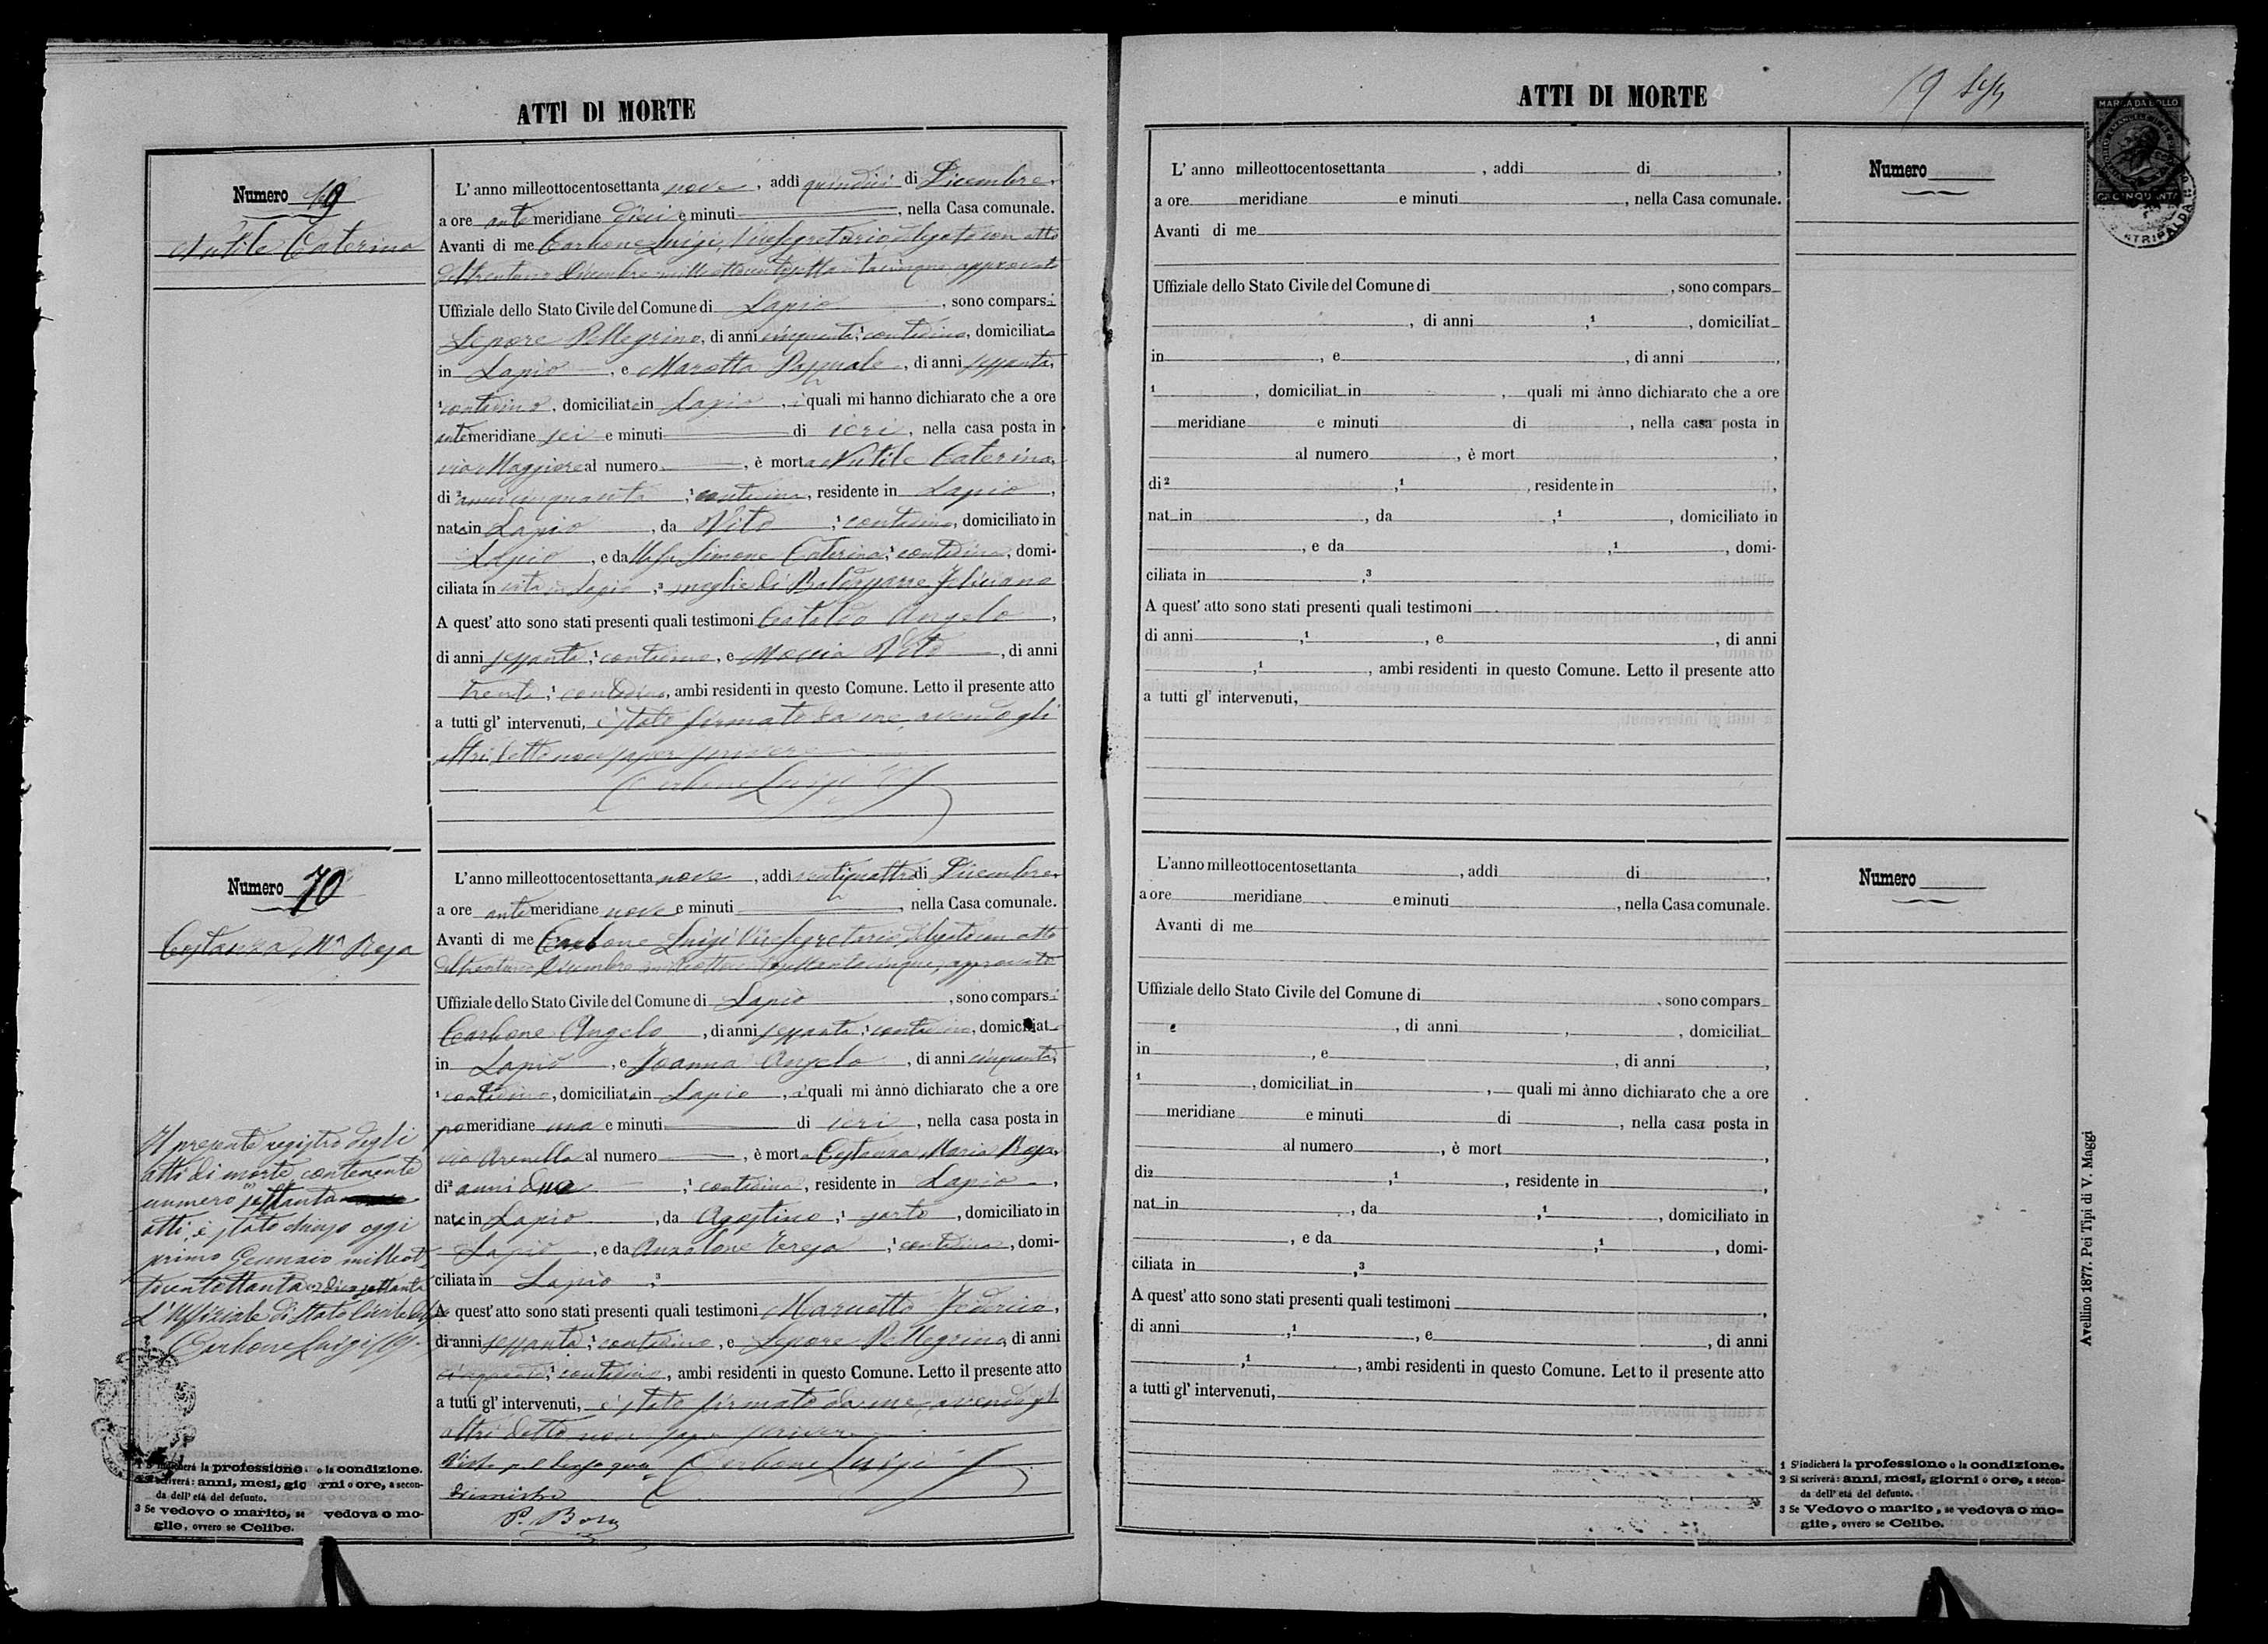 ATTI DI MORTE
Numero 69
Nutile Caterina
L' anno milleottocentosettanta nove, addì quindici di Dicembre,
a ore antemeridiane dieci e minuti, nella Casa comunale.
Avanti di me Carbone Luigi, Vicesegretario, delegato con atto
del trentuno Dicembre milleottocentosettantacinque, approvato
Uffiziale dello Stato Civile del Comune di Lapio, sono comparsi
Lepore Pellegrino, di anni cinquanta, ¹ contadino, domiciliato
in Lapio, e Marotta Pasquale, di anni sessanta,
¹ contadino, domiciliato in Lapio, i quali mi hanno dichiarato che a ore
antemeridiane sei e minuti di ieri, nella casa posta in
via Maggiore al numero, è morta Nutile Caterina,
di ² anni cinquanta, ¹ contadina, residente in Lapio,
nata in Lapio, da Vito, ¹ contadino, domiciliato in
Lapio, e da Simone Caterina, ¹ contadina, domi-
ciliata in vita in Lapio, ³ moglie di Baldassarre Feliciano
A quest' atto sono stati presenti quali testimoni Cataldo Angelo,
di anni sessanta, ¹ contadino, e Moccia Vito, di anni
trenta, ¹ contadino, ambi residenti in questo Comune. Letto il presente atto
a tutti gl' intervenuti, è stato firmato da me, avendo gli
altri detto non saper scrivere
Carbone Luigi
Numero 70
Costanza Mª Rosa
L'anno milleottocentosettanta nove, addì ventiquattro di Dicembre,
a ore antemeridiane nove e minuti, nella Casa comunale.
Avanti di me Carbone Luigi Vicesegretario, delegato con atto
del trentuno Dicembre milleottocentosettantacinque, approvato
Uffiziale dello Stato Civile del Comune di Lapio, sono comparsi
Carbone Angelo, di anni sessanta, ¹ contadino, domiciliato
in Lapio, e Joanna Angelo, di anni cinquanta,
¹ contadino, domiciliato in Lapio, i quali mi ànno dichiarato che a ore
pomeridiane una e minuti di ieri, nella casa posta in
via Arenella al numero, è morta Costanza Maria Rosa,
di ² anni due, ¹ contadina, residente in Lapio,
nata in Lapio, da Agostino, ¹ sarto, domiciliato in
Lapio, e da Anzalone Teresa, ¹ contadina, domi-
ciliata in Lapio, ³
A quest' atto sono stati presenti quali testimoni Federico,
di anni sessanta, ¹ contadino, e Lepore Pellegrino, di anni
cinquanta, ¹ contadino, ambi residenti in questo Comune. Letto il presente atto
a tutti gl' intervenuti, è stato firmato da me, avendo gli
altri detto non saper scrivere
Carbone Luigi
Il presente registro degli
atti di morte contenente
numero settanta
atti, è stato chiuso oggi
primo Gennaio milleot-
tocentottanta
L'Uffiziale di Stato Civile
Carbone Luigi
1 S'indicherà la professione o la condizione.
2 Si scriverà: anni, mesi, giorni o ore, a secon-
da dell' età del defunto.
3 Se vedovo o marito, se vedova o mo-
glie, ovvero se Celibe.
ATTI DI MORTE
19
MARCA DA BOLLO
ATRIPALDA
Numero
L' anno milleottocentosettanta, addì di,
a ore meridiane e minuti, nella Casa comunale.
Avanti di me
Uffiziale dello Stato Civile del Comune di, sono compars
, di anni, ¹, domiciliat
in, e, di anni,
¹, domiciliat in, quali mi ànno dichiarato che a ore
meridiane e minuti di, nella casa posta in
al numero, è mort,
di ², ¹, residente in,
nat in, da, ¹, domiciliato in
, e da, ¹, domi-
ciliata in, ³
A quest' atto sono stati presenti quali testimoni
di anni, ¹, e, di anni
, ¹, ambi residenti in questo Comune. Letto il presente atto
a tutti gl' intervenuti,
Numero
L'anno milleottocentosettanta, addì di,
a ore meridiane e minuti, nella Casa comunale.
Avanti di me
Uffiziale dello Stato Civile del Comune di, sono compars
, di anni, domiciliat
in, e, di anni,
¹, domiciliat in, quali mi ànno dichiarato che a ore
meridiane e minuti di, nella casa posta in
al numero, è mort,
di ², ¹, residente in,
nat in, da, ¹, domiciliato in
, e da, ¹, domi-
ciliata in, ³
A quest' atto sono stati presenti quali testimoni,
di anni, ¹, e, di anni
, ¹, ambi residenti in questo Comune. Letto il presente atto
a tutti gl' intervenuti,
1 S'indicherà la professione o la condizione.
2 Si scriverà: anni, mesi, giorni o ore, a secon-
da dell' età del defunto.
3 Se Vedovo o marito, se vedova o mo-
glie, ovvero se Celibe.
Avellino 1877. Pei Tipi di V. Maggi